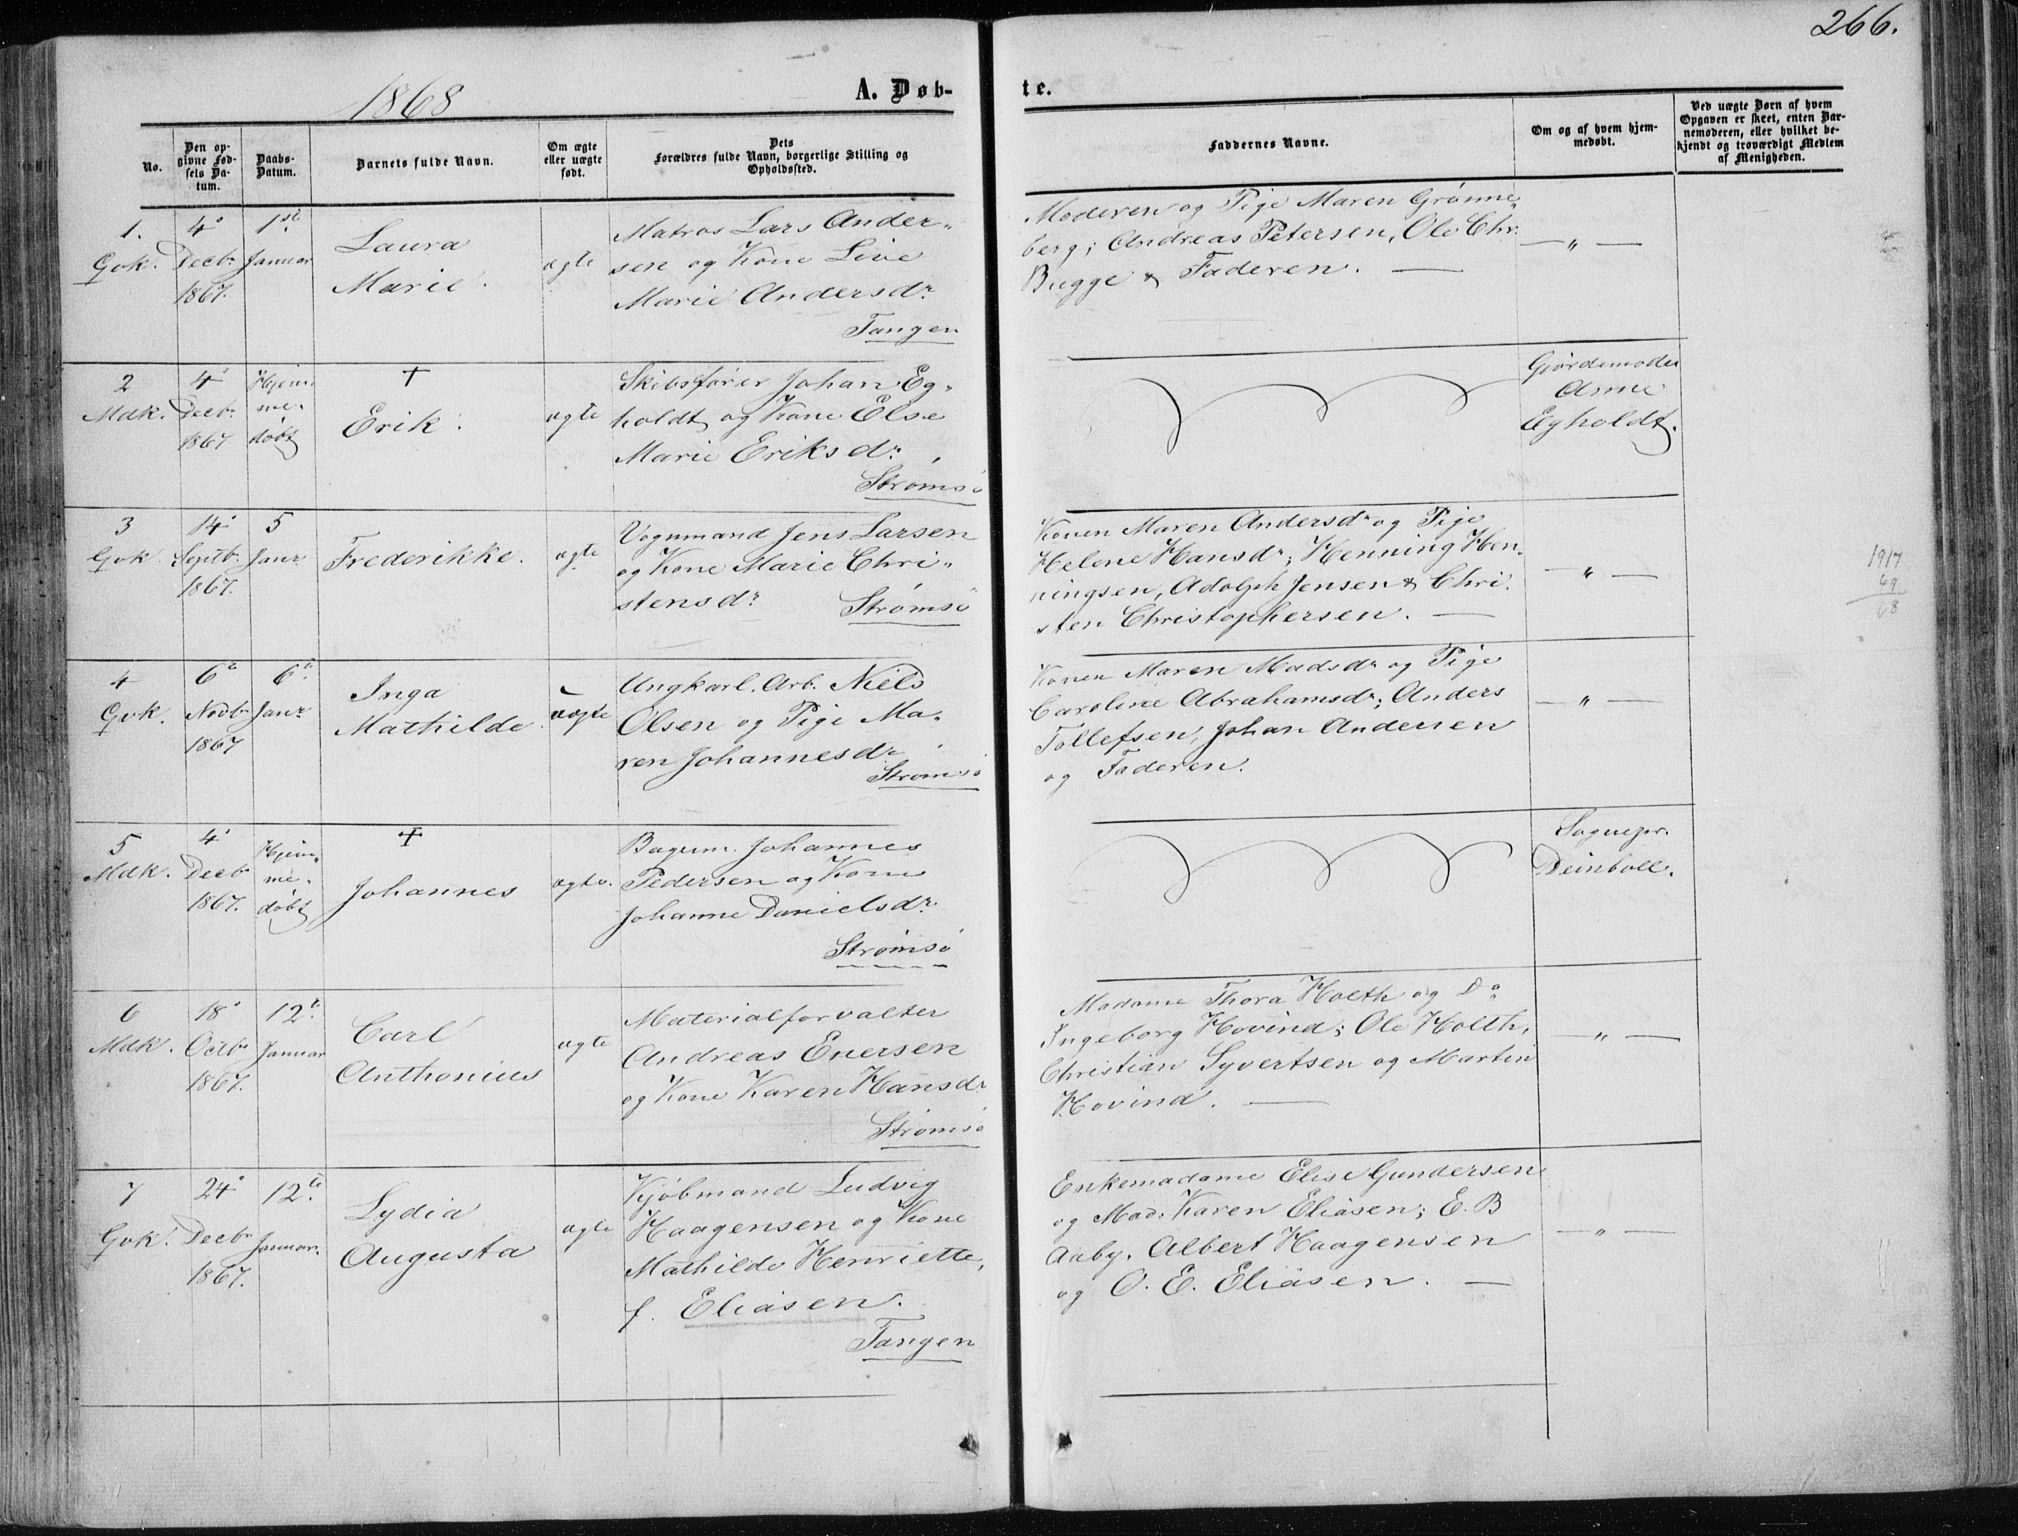 266.
1868
A. Døb-
te.
No.
Den op-
givne Fød-
sels Da-
tum.
Daabs-
Datum.
Barnets fulde Navn.
Om ægte
eller uægte
født.
Dets
Forældres fulde Navn, borgerlige Stilling og
Opholdssted.
Faddernes Navne.
Om og af hvem hjem-
medøbt.
Ved uægte Børn af hvem
Opgaven er skeet, enten Bar-
nemoderen, eller hvilket be-
kjendt og troværdigt Medlem
af Menigheden.
1.
Gvk.
4de
Decbr
1867.
1ste
Januar
Laura
Marie.
ægte
Matros Lars Ander-
sen og Kone Live
Marie Andersdr
Tangen
Moderen og Pige Maren Grønne-
berg; Andreas Petersen, Ole Chr.
Bugge & Faderen. —
— " —
2
Mdk.
4
Decbr
1867
Hjem-
me-
døbt
+
Erik.
ægte
Skibsfører Johan Eg-
holdt og Kone Else
Marie Eriksdr.
Strømsø
Gjordemoder
Anne
Egholdt.
3
Gvk.
14
Septbr
1867.
5
Janr
Frederikke.
ægte
Vognmand Jens Larsen
og Kone Marie Chri-
stensdr
Strømsø
Konen Maren Andersdr og Pige
Helene Hansdr; Henning Hen-
ningsen, Adolph Jensen & Chri-
sten Christophersen. —
— " —
1917
49
68
4
Gvk.
6te
Novbr
1867
6te
Janr
Inga
Mathilde.
uægte
Ungkarl. Arb. Niels
Olsen og Pige Ma-
ren Johannesdr
Strømsø
Konen Maren Madsdr og Pige
Caroline Abrahamsdr; Anders
Tollefsen, Johan Andersen
og Faderen.
— " —
5
Mdk.
4
Decbr
1867.
Hjem-
me-
døbt
+
Johannes
ægte.
Bagerm. Johannes
Pedersen og Kone
Johanne Danielsdr.
Strømsø
Sognepr.
Deinboll.
6
Mdk.
18
Octbr
1867.
12te
Januar
Carl
Anthonius
ægte
Materialforvalter
Andreas Enersen
og Kone Karen Hansdr
Strømsø
Madame Thora Holth og Do
Ingeborg Hovind; Ole Holth,
Christian Syvertsen og Martin
Hovind. —
— " —
7
Gvk.
24
Decbr
1867.
12te
Januar.
Lydia
Augusta
ægte
Kjøbmand Ludvig
Haagensen og Kone
Mathilde Henriette,
f. Eliasen.
Tangen
Enkemadame Elise Gundersen
og Mad. Karen Eliasen; E. B
Aaby, Albert Haagensen
og O. E. Eliasen. —
— " —